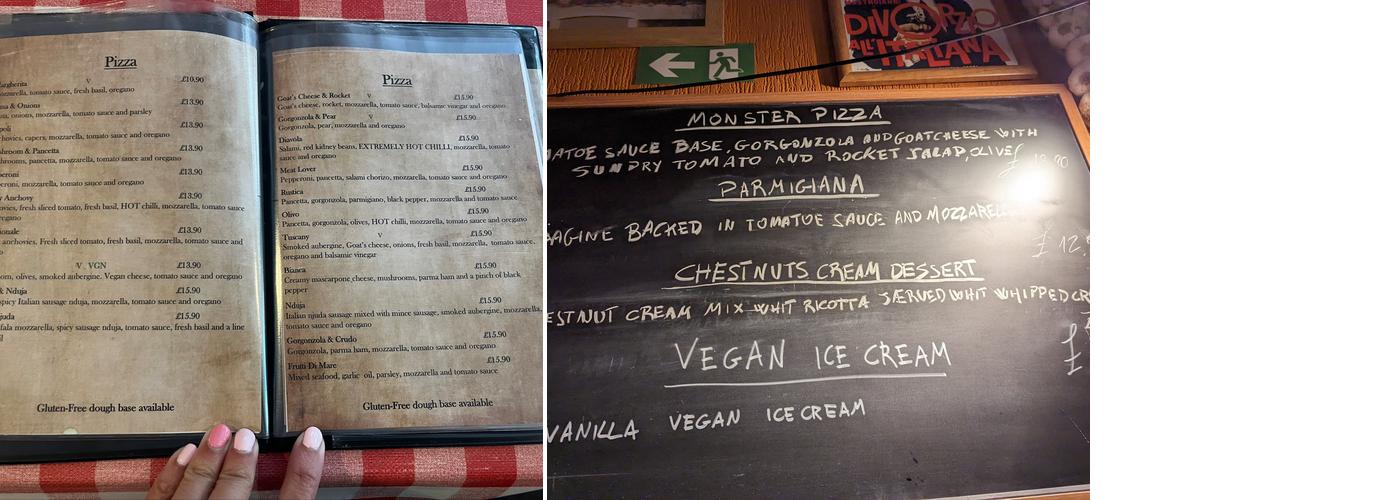 Pizza
argherita V £10.90
mozzarella, tomato sauce, fresh basil, oregano
na & Onions £13.90
una, onions, mozzarella, tomato sauce and parsley
poli £13.90
chovies, capers, mozzarella, tomato sauce and oregano
shroom & Pancetta £13.90
shrooms, pancetta, mozzarella, tomato sauce and oregano
peroni £13.90
peroni, mozzarella, tomato sauce and oregano
y Anchovy £13.90
ovies, fresh sliced tomato, fresh basil, HOT chilli, mozzarella, tomato sauce
regano
ionale £13.90
anchovies. Fresh sliced tomato, fresh basil, mozzarella, tomato sauce and
o
V VGN £13.90
om, olives, smoked aubergine. Vegan cheese, tomato sauce and oregano
& Nduja £15.90
spicy Italian sausage nduja, mozzarella, tomato sauce and oregano
juda £15.90
fala mozzarella, spicy sausage nduja, tomato sauce, fresh basil and a line
il
Gluten-Free dough base available
Pizza
Goat's Cheese & Rocket V £15.90
Goat's cheese, rocket, mozzarella, tomato sauce, balsamic vinegar and oregano
Gorgonzola & Pear V £15.90
Gorgonzola, pear, mozzarella and oregano
Diavola £15.90
Salami, red kidney beans, EXTREMELY HOT CHILLI, mozzarella, tomato
sauce and oregano
Meat Lover £15.90
Pepperoni, pancetta, salami chorizo, mozzarella, tomato sauce and oregano
Rustica £15.90
Pancetta, gorgonzola, parmigiano, black pepper, mozzarella and tomato sauce
Olivo £15.90
Pancetta, gorgonzola, olives, HOT chilli, mozzarella, tomato sauce and oregano
Tuscany V £15.90
Smoked aubergine, Goat's cheese, onions, fresh basil, mozzarella, tomato sauce,
oregano and balsamic vinegar
Bianca £15.90
Creamy mascarpone cheese, mushrooms, parma ham and a pinch of black
pepper
Nduja £15.90
Italian njuda sausage mixed with mince sausage, smoked aubergine, mozzarella,
tomato sauce and oregano
Gorgonzola & Crudo £15.90
Gorgonzola, parma ham, mozzarella, tomato sauce and oregano
Frutti Di Mare £15.90
Mixed seafood, garlic oil, parsley, mozzarella and tomato sauce
Gluten-Free dough base available
DIVORZIO
ALL'ITALIANA
MONSTER PIZZA
MATOE SAUCE BASE, GORGONZOLA AND GOATCHEESE WITH
SUNDRY TOMATO AND ROCKET SALAD, OLIVES
£
PARMIGIANA
BACKED IN TOMATOE SAUCE AND MOZZARELL
£ 12.
CHESTNUTS CREAM DESSERT
ESTNUT CREAM MIX WHIT RICOTTA SÆRVED WHIT WHIPPED CR
£
VEGAN ICE CREAM
VANILLA VEGAN ICE CREAM